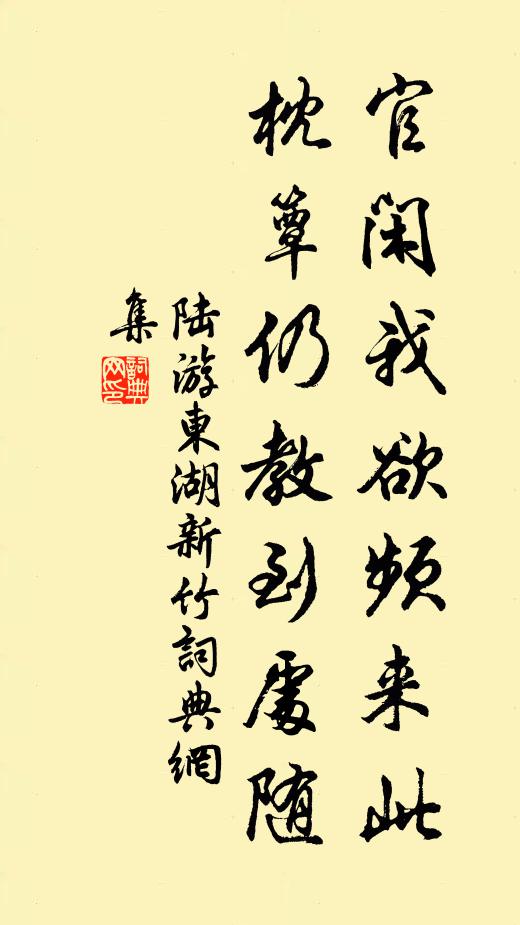 官閑我欲頻来此
枕簟仍教到處随
陸游東湖新竹詞典網
集
詞典
网印